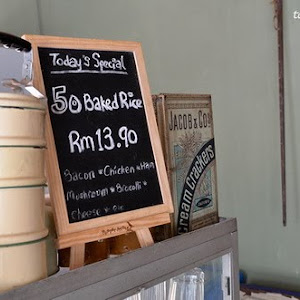 Today's Special
50 Baked Rice
Rm13.90
Bacon * Chicken * Ham
Mushroom * Brocolli *
Cheese *
JACOB & CO.
Cream Crackers